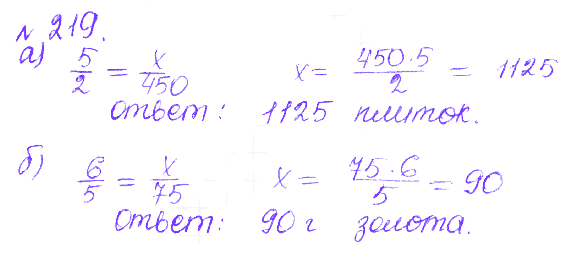 № 219.
а) 5/2 = x/450 x = 450·5/2 = 1125
Ответ: 1125 плиток.
б) 6/5 = x/75 x = 75·6/5 = 90
Ответ: 90 г золота.